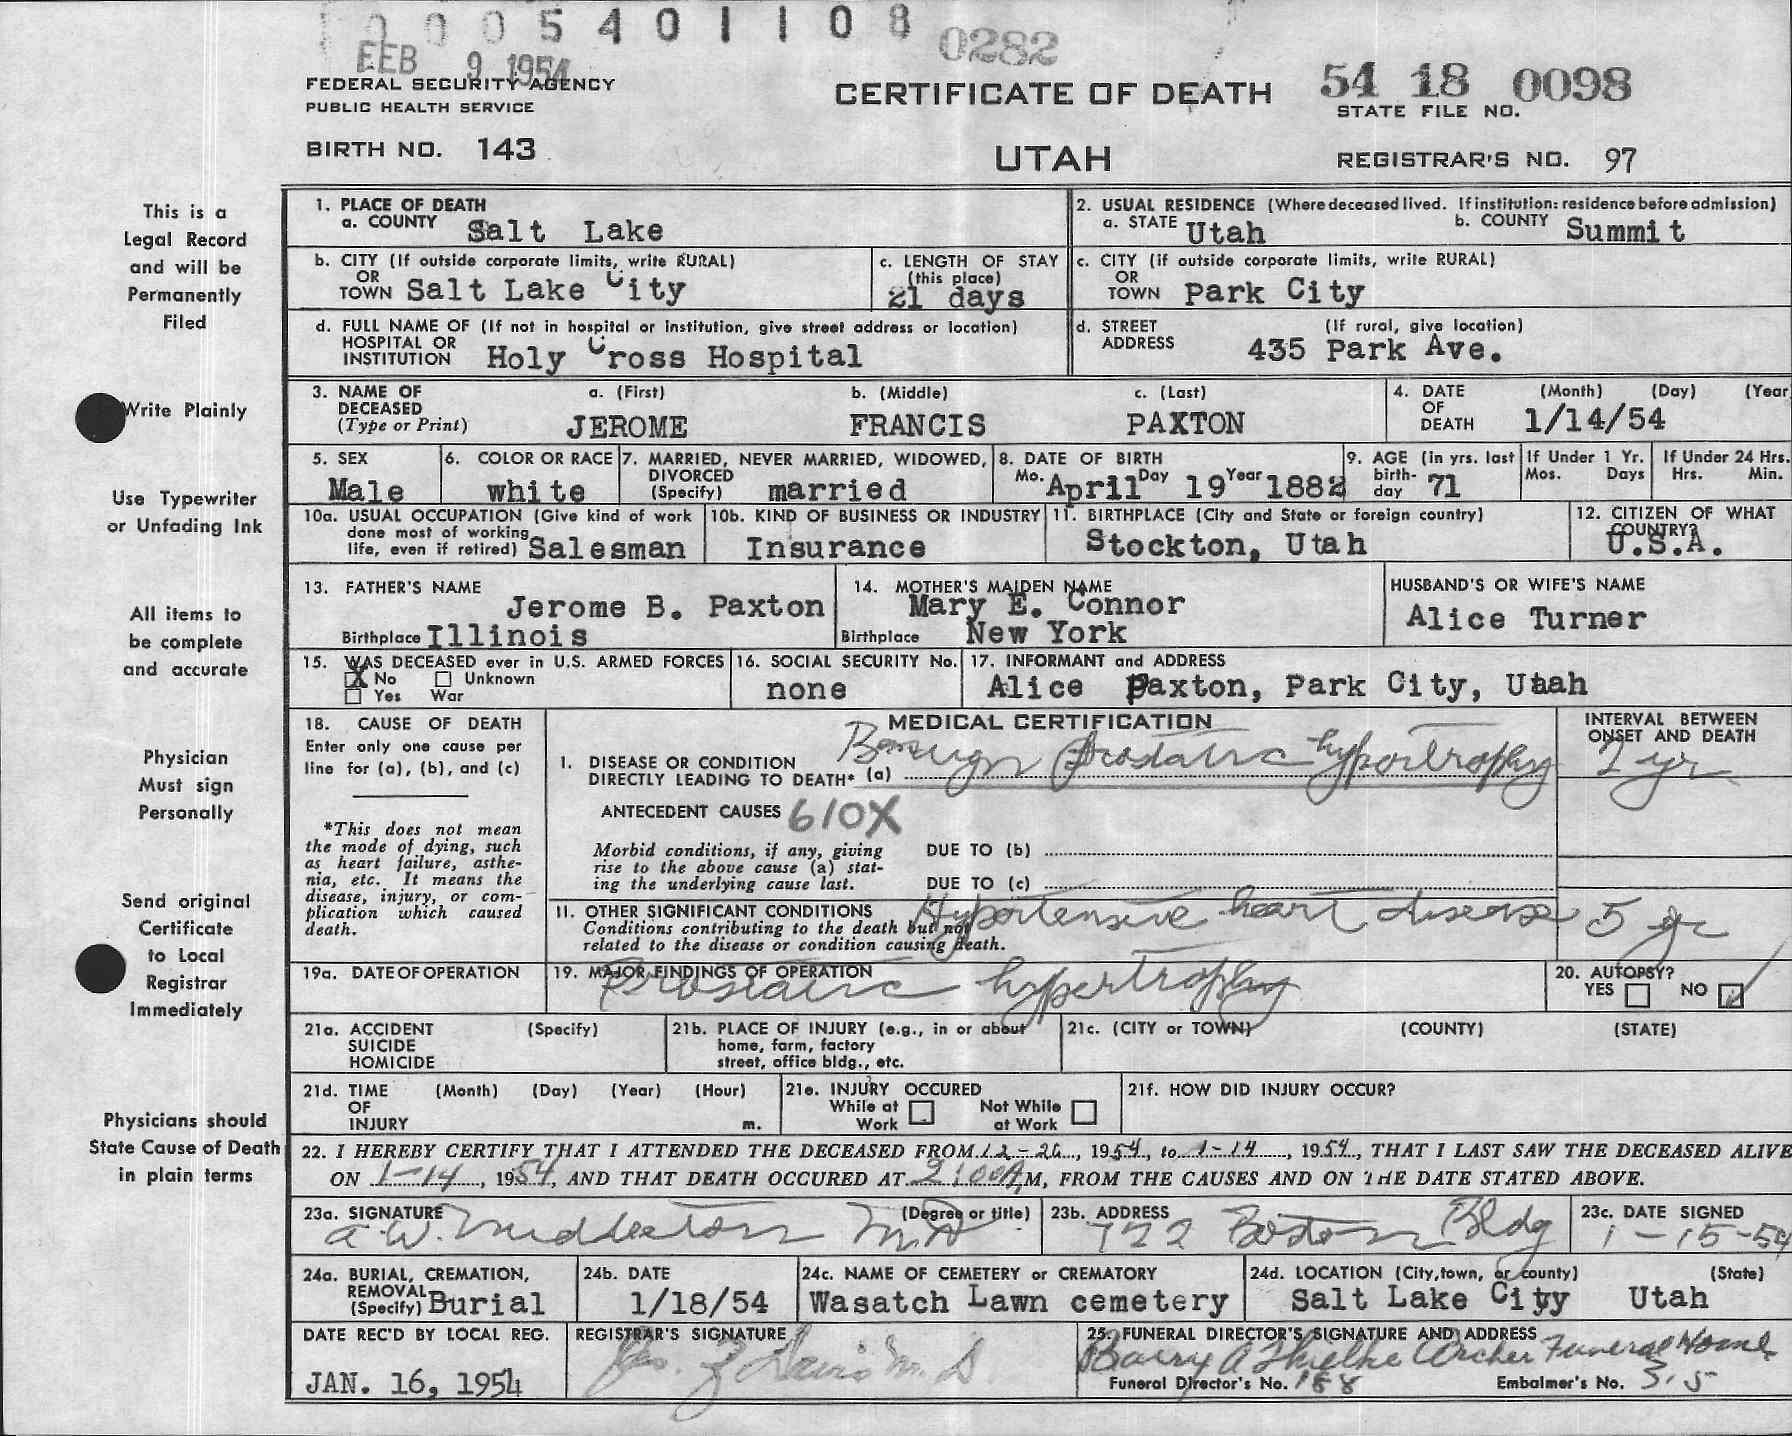 0005401108
0282
FEB 9 1954
FEDERAL SECURITY AGENCY
PUBLIC HEALTH SERVICE
CERTIFICATE OF DEATH
54 18 0098
STATE FILE NO.
BIRTH NO. 143
UTAH
REGISTRAR'S NO. 97
This is a
Legal Record
and will be
Permanently
Filed
Write Plainly
Use Typewriter
or Unfading Ink
All items to
be complete
and accurate
Physician
Must sign
Personally
Send original
Certificate
to Local
Registrar
Immediately
Physicians should
State Cause of Death
in plain terms
1. PLACE OF DEATH
a. COUNTY Salt Lake
2. USUAL RESIDENCE (Where deceased lived. If institution: residence before admission)
a. STATE Utah b. COUNTY Summit
b. CITY (If outside corporate limits, write RURAL)
OR
TOWN Salt Lake City
c. LENGTH OF STAY
(this place)
21 days
c. CITY (if outside corporate limits, write RURAL)
OR
TOWN Park City
d. FULL NAME OF (If not in hospital or institution, give street address or location)
HOSPITAL OR
INSTITUTION Holy Cross Hospital
d. STREET (If rural, give location)
ADDRESS 435 Park Ave.
3. NAME OF a. (First) b. (Middle) c. (Last)
DECEASED
(Type or Print) JEROME FRANCIS PAXTON
4. DATE (Month) (Day) (Year
OF
DEATH 1/14/54
5. SEX
Male
6. COLOR OR RACE
white
7. MARRIED, NEVER MARRIED, WIDOWED,
DIVORCED
(Specify) married
8. DATE OF BIRTH
Mo. April Day 19 Year 1882
9. AGE (In yrs. last
birth-
day 71
If Under 1 Yr.
Mos. Days
If Under 24 Hrs.
Hrs. Min.
10a. USUAL OCCUPATION (Give kind of work
done most of working
life, even if retired) Salesman
10b. KIND OF BUSINESS OR INDUSTRY
Insurance
11. BIRTHPLACE (City and State or foreign country)
Stockton, Utah
12. CITIZEN OF WHAT
COUNTRY?
U.S.A.
13. FATHER'S NAME
Jerome B. Paxton
Birthplace Illinois
14. MOTHER'S MAIDEN NAME
Mary E. Connor
Birthplace New York
HUSBAND'S OR WIFE'S NAME
Alice Turner
15. WAS DECEASED ever in U.S. ARMED FORCES
X No Unknown
Yes War
16. SOCIAL SECURITY No.
none
17. INFORMANT and ADDRESS
Alice Paxton, Park City, Utah
18. CAUSE OF DEATH
Enter only one cause per
line for (a), (b), and (c)
*This does not mean
the mode of dying, such
as heart failure, asthe-
nia, etc. It means the
disease, injury, or com-
plication which caused
death.
MEDICAL CERTIFICATION
INTERVAL BETWEEN
ONSET AND DEATH
I. DISEASE OR CONDITION
DIRECTLY LEADING TO DEATH* (a) Benign prostatic hypertrophy 2 yr
ANTECEDENT CAUSES 610X
Morbid conditions, if any, giving
rise to the above cause (a) stat-
ing the underlying cause last.
DUE TO (b)
DUE TO (c)
II. OTHER SIGNIFICANT CONDITIONS
Conditions contributing to the death but not
related to the disease or condition causing death.
Hypertensive heart disease 5 yr
19a. DATE OF OPERATION
19. MAJOR FINDINGS OF OPERATION
Prostatic hypertrophy
20. AUTOPSY?
YES NO ✓
21a. ACCIDENT (Specify)
SUICIDE
HOMICIDE
21b. PLACE OF INJURY (e.g., in or about
home, farm, factory
street, office bldg., etc.
21c. (CITY or TOWN) (COUNTY) (STATE)
21d. TIME (Month) (Day) (Year) (Hour)
OF
INJURY m.
21e. INJURY OCCURED
While at Not While
Work at Work
21f. HOW DID INJURY OCCUR?
22. I HEREBY CERTIFY THAT I ATTENDED THE DECEASED FROM 12-26, 1954, to 1-14, 1954, THAT I LAST SAW THE DECEASED ALIVE
ON 1-14, 1954, AND THAT DEATH OCCURED AT 2:00A,M, FROM THE CAUSES AND ON THE DATE STATED ABOVE.
23a. SIGNATURE (Degree or title)
a. W. Middleton M.D
23b. ADDRESS
722 Boston Bldg
23c. DATE SIGNED
1-15-54
24a. BURIAL, CREMATION,
REMOVAL
(Specify) Burial
24b. DATE
1/18/54
24c. NAME OF CEMETERY or CREMATORY
Wasatch Lawn cemetery
24d. LOCATION (City,town, or county) (State)
Salt Lake City Utah
DATE REC'D BY LOCAL REG.
JAN. 16, 1954
REGISTRAR'S SIGNATURE
Davis M.D.
25. FUNERAL DIRECTOR'S SIGNATURE AND ADDRESS
Barry A Thielke Archer Funeral Home
Funeral Director's No. 188 Embalmer's No.